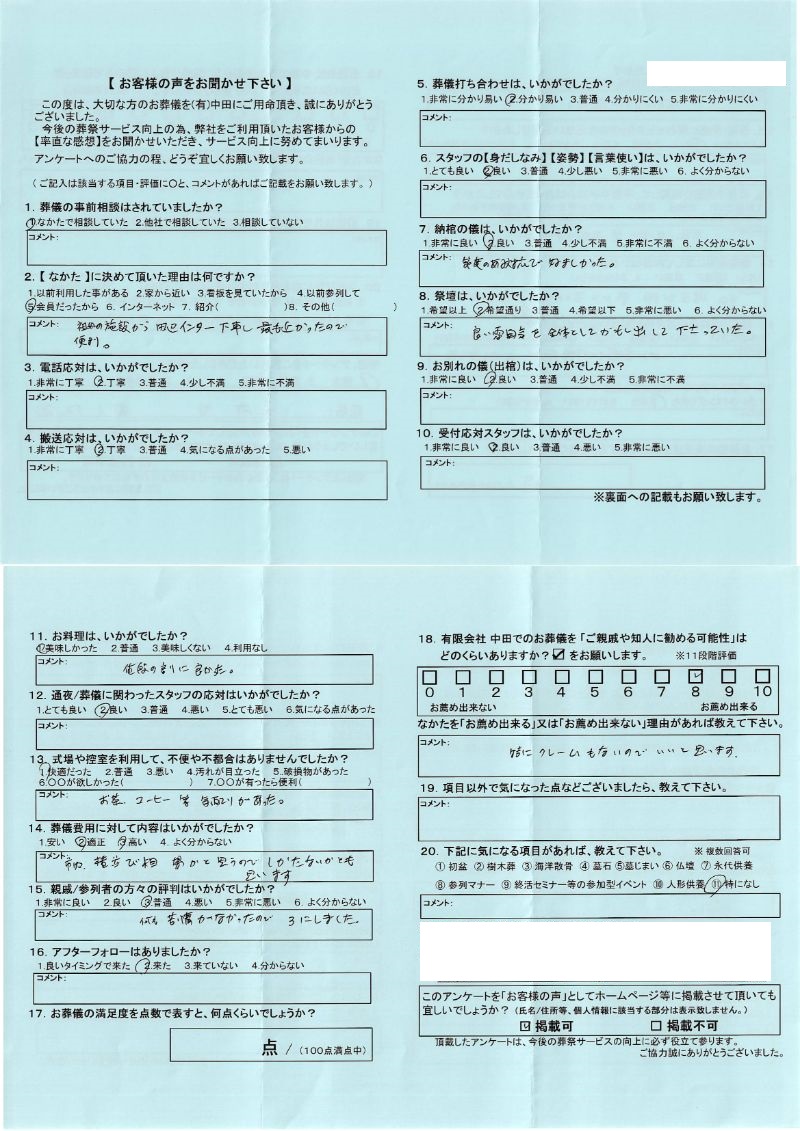 【 お客様の声をお聞かせ下さい 】
この度は、大切な方のお葬儀を(有)中田にご用命頂き、誠にありがとう
ございました。
今後の葬祭サービス向上の為、弊社をご利用頂いたお客様からの
【率直な感想】をお聞かせいただき、サービス向上に努めてまいります。
アンケートへのご協力の程、どうぞ宜しくお願い致します。
（ご記入は該当する項目・評価に○と、コメントがあればご記載をお願い致します。）
1. 葬儀の事前相談はされていましたか？
1.なかたで相談していた 2.他社で相談していた 3.相談していない
コメント:
2. 【 なかた 】に決めて頂いた理由は何ですか？
1.以前利用した事がある 2.家から近い 3.看板を見ていたから 4.以前参列して
5会員だったから 6. インターネット 7. 紹介( )8. その他( )
コメント:
インター下車し最も近かったので
便利。
3. 電話応対は、いかがでしたか？
1.非常に丁寧 2.丁寧 3.普通 4.少し不満 5.非常に不満
コメント:
4. 搬送応対は、いかがでしたか？
1.非常に丁寧 2.丁寧 3.普通 4.気になる点があった 5.悪い
コメント:
5. 葬儀打ち合わせは、いかがでしたか？
1.非常に分かり易い 2.分かり易い 3.普通 4.分かりにくい 5.非常に分かりにくい
コメント:
6. スタッフの【身だしなみ】【姿勢】【言葉使い】は、いかがでしたか？
1.とても良い 2.良い 3.普通 4.少し悪い 5.非常に悪い 6. よく分からない
コメント:
7. 納棺の儀は、いかがでしたか？
1.非常に良い 2.良い 3.普通 4.少し不満 5.非常に不満 6. よく分からない
コメント:
8. 祭壇は、いかがでしたか？
1.希望以上 2.希望通り 3.普通 4.希望以下 5.非常に悪い 6. よく分からない
コメント:
良い雰囲気を全体としてかもし出して下さっていた。
9. お別れの儀(出棺)は、いかがでしたか？
1.非常に良い 2.良い 3.普通 4.少し不満 5.非常に不満
コメント:
10. 受付応対スタッフは、いかがでしたか？
1.非常に良い 2.良い 3.普通 4.悪い 5.非常に悪い
コメント:
※裏面への記載もお願い致します。
11. お料理は、いかがでしたか？
1.美味しかった 2.普通 3.美味しくない 4.利用なし
コメント:
12. 通夜/葬儀に関わったスタッフの応対はいかがでしたか？
1.とても良い 2.良い 3.普通 4.悪い 5.とても悪い 6.気になる点があった
コメント:
13. 式場や控室を利用して、不便や不都合はありませんでしたか？
1.快適だった 2.普通 3.悪い 4.汚れが目立った 5.破損物があった
6.○○が欲しかった( ) 7.○○が有ったら便利( )
コメント:
お茶、コーヒー等 気配りがあった。
14. 葬儀費用に対して内容はいかがでしたか？
1.安い 2適正 3高い 4. よく分からない
コメント:
と思うので しかたないかとも
思います
15. 親戚/参列者の方々の評判はいかがでしたか？
1.非常に良い 2.良い 3普通 4.悪い 5.非常に悪い 6. よく分からない
コメント:
何も苦情がなかったので 3にしました。
16. アフターフォローはありましたか？
1.良いタイミングで来た 2.来た 3.来ていない 4.分からない
コメント:
17. お葬儀の満足度を点数で表すと、何点くらいでしょうか？
点 / (100点満点中)
18. 有限会社 中田でのお葬儀を「ご親戚や知人に勧める可能性」は
どのくらいありますか？☑をお願いします。 ※11段階評価
0 1 2 3 4 5 6 7 8 9 10
お薦め出来ない お薦め出来る
なかたを「お薦め出来る」又は「お薦め出来ない」理由があれば教えて下さい。
コメント:
特にクレームもないので いいと思います。
19. 項目以外で気になった点などございましたら、教えて下さい。
コメント:
20. 下記に気になる項目があれば、教えて下さい。 ※ 複数回答可
① 初盆 ② 樹木葬 ③ 海洋散骨 ④ 墓石 ⑤墓じまい ⑥ 仏壇 ⑦ 永代供養
⑧ 参列マナー ⑨ 終活セミナー等の参加型イベント ⑩ 人形供養 ⑪ 特になし
コメント:
このアンケートを「お客様の声」としてホームページ等に掲載させて頂いても
宜しいでしょうか？(氏名/住所等、個人情報に該当する部分は表示致しません。)
☑ 掲載可 □ 掲載不可
頂戴したアンケートは、今後の葬祭サービスの向上に必ず役立て参ります。
ご協力誠にありがとうございました。